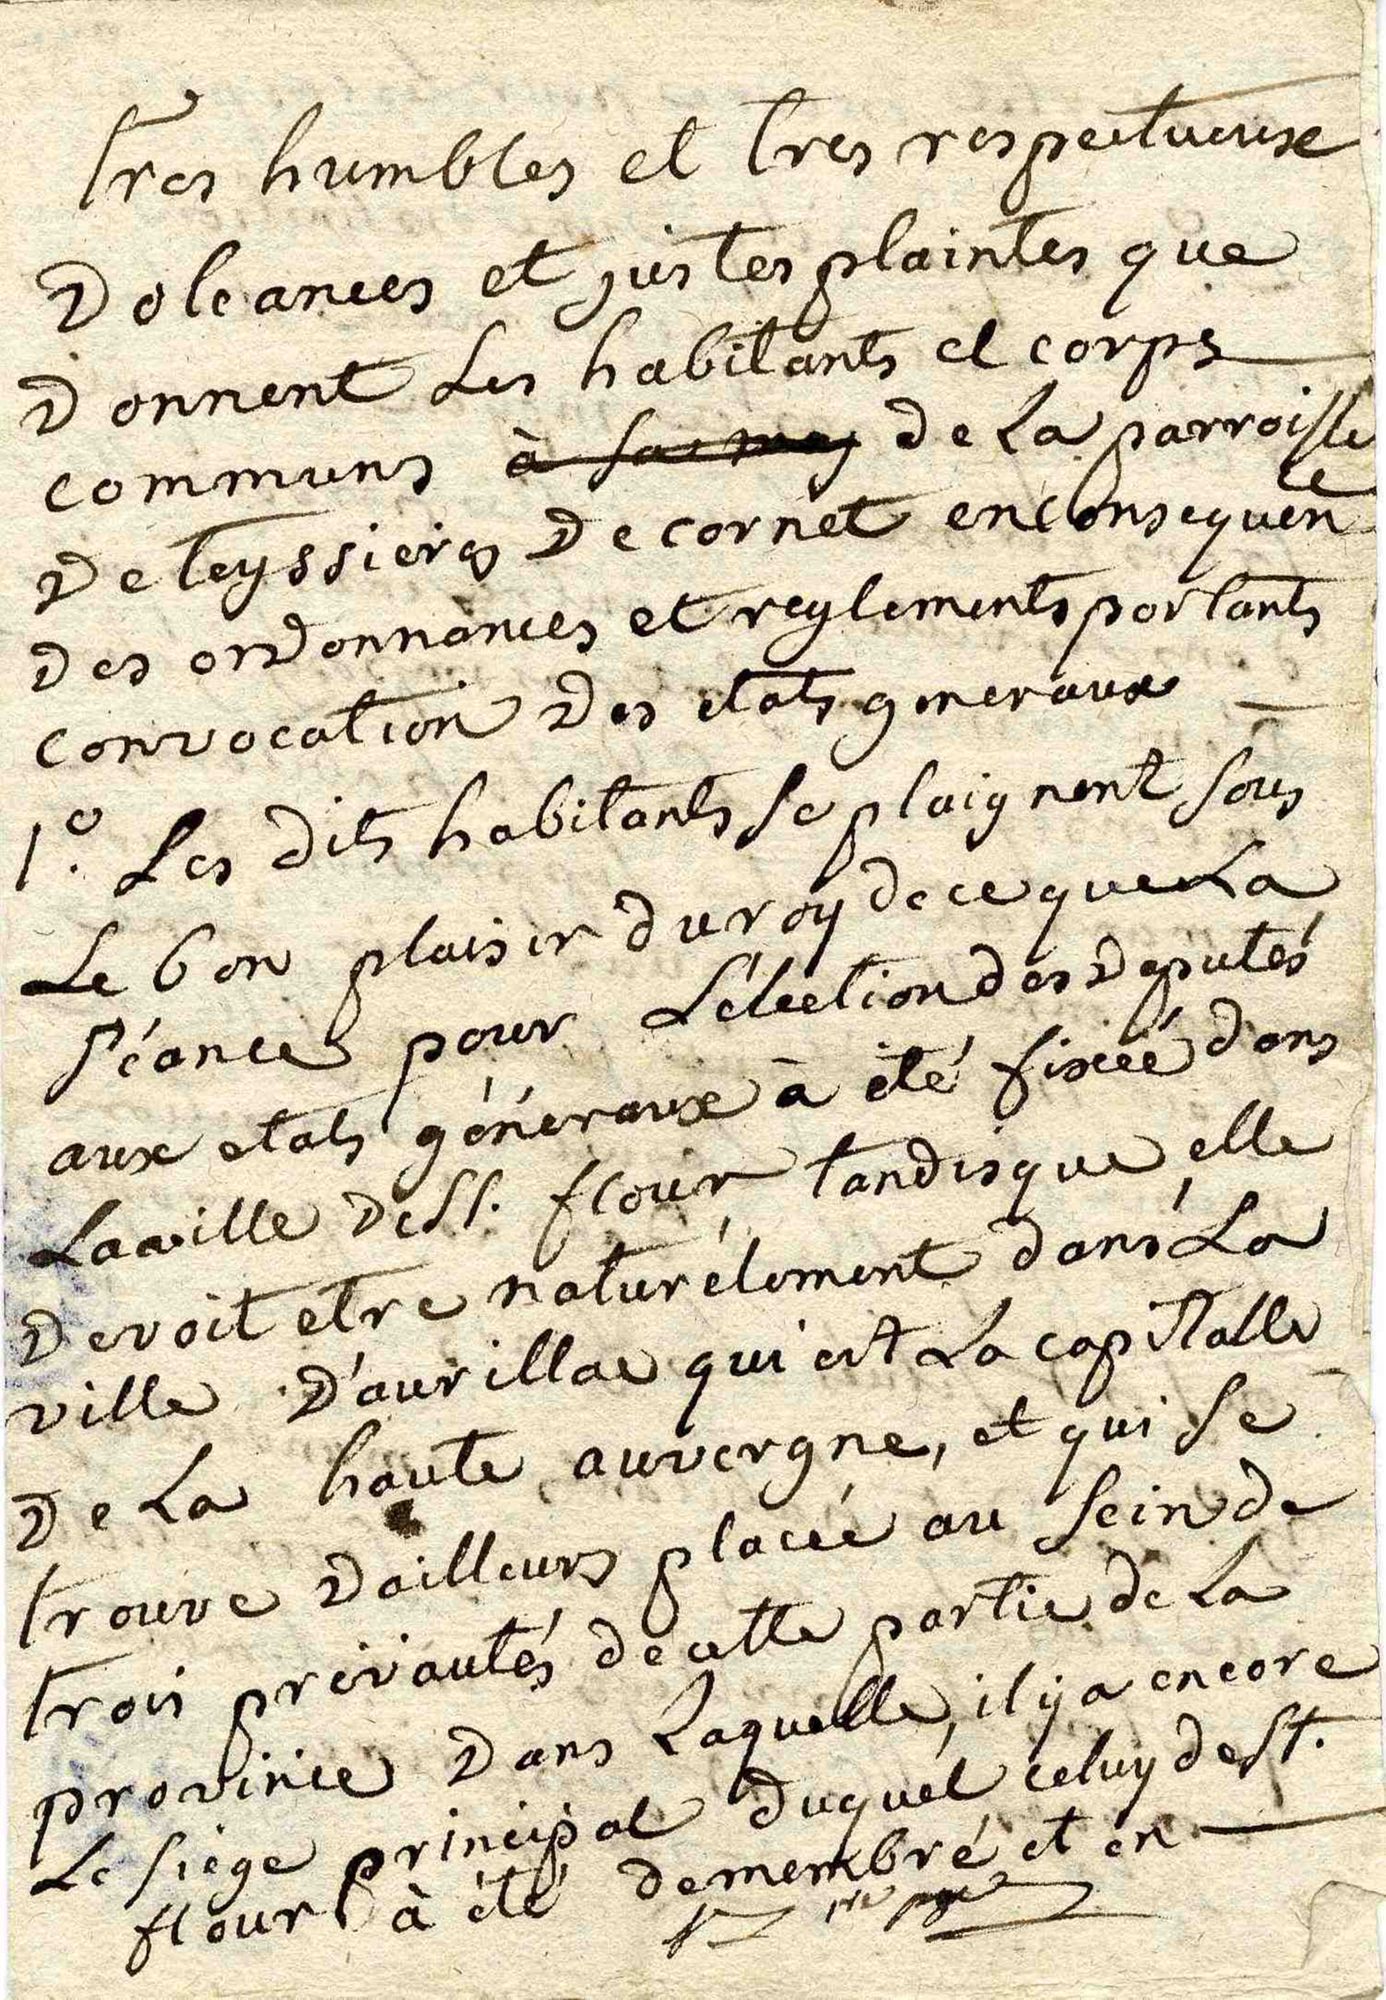 tres humbles et tres respectueuse
Doleances et justes plaintes que
Donnent Les habitants et corps
communs à sa de La parroisse
De teyssieres De cornet en consequen
ce
Des ordonnances et reglements portants
convocation Des etats generaux
1.° Les dits habitants se plaignent sous
Le bon plaisir du roy de ce que La
séance pour L'election des Deputés
aux etats généraux à été fixée dans
La ville De St. flour tandis que elle
Devoit etre naturélement dans La
ville D'aurillac qui est La capitalle
De La haute auvergne, et qui se
trouve Dailleurs placée au sein de
trois prévautés de cette partie de La
province Dans Laquelle, il y a encore
Le siege principal duquel celuy de St.
flour à été demembré et en
pre page